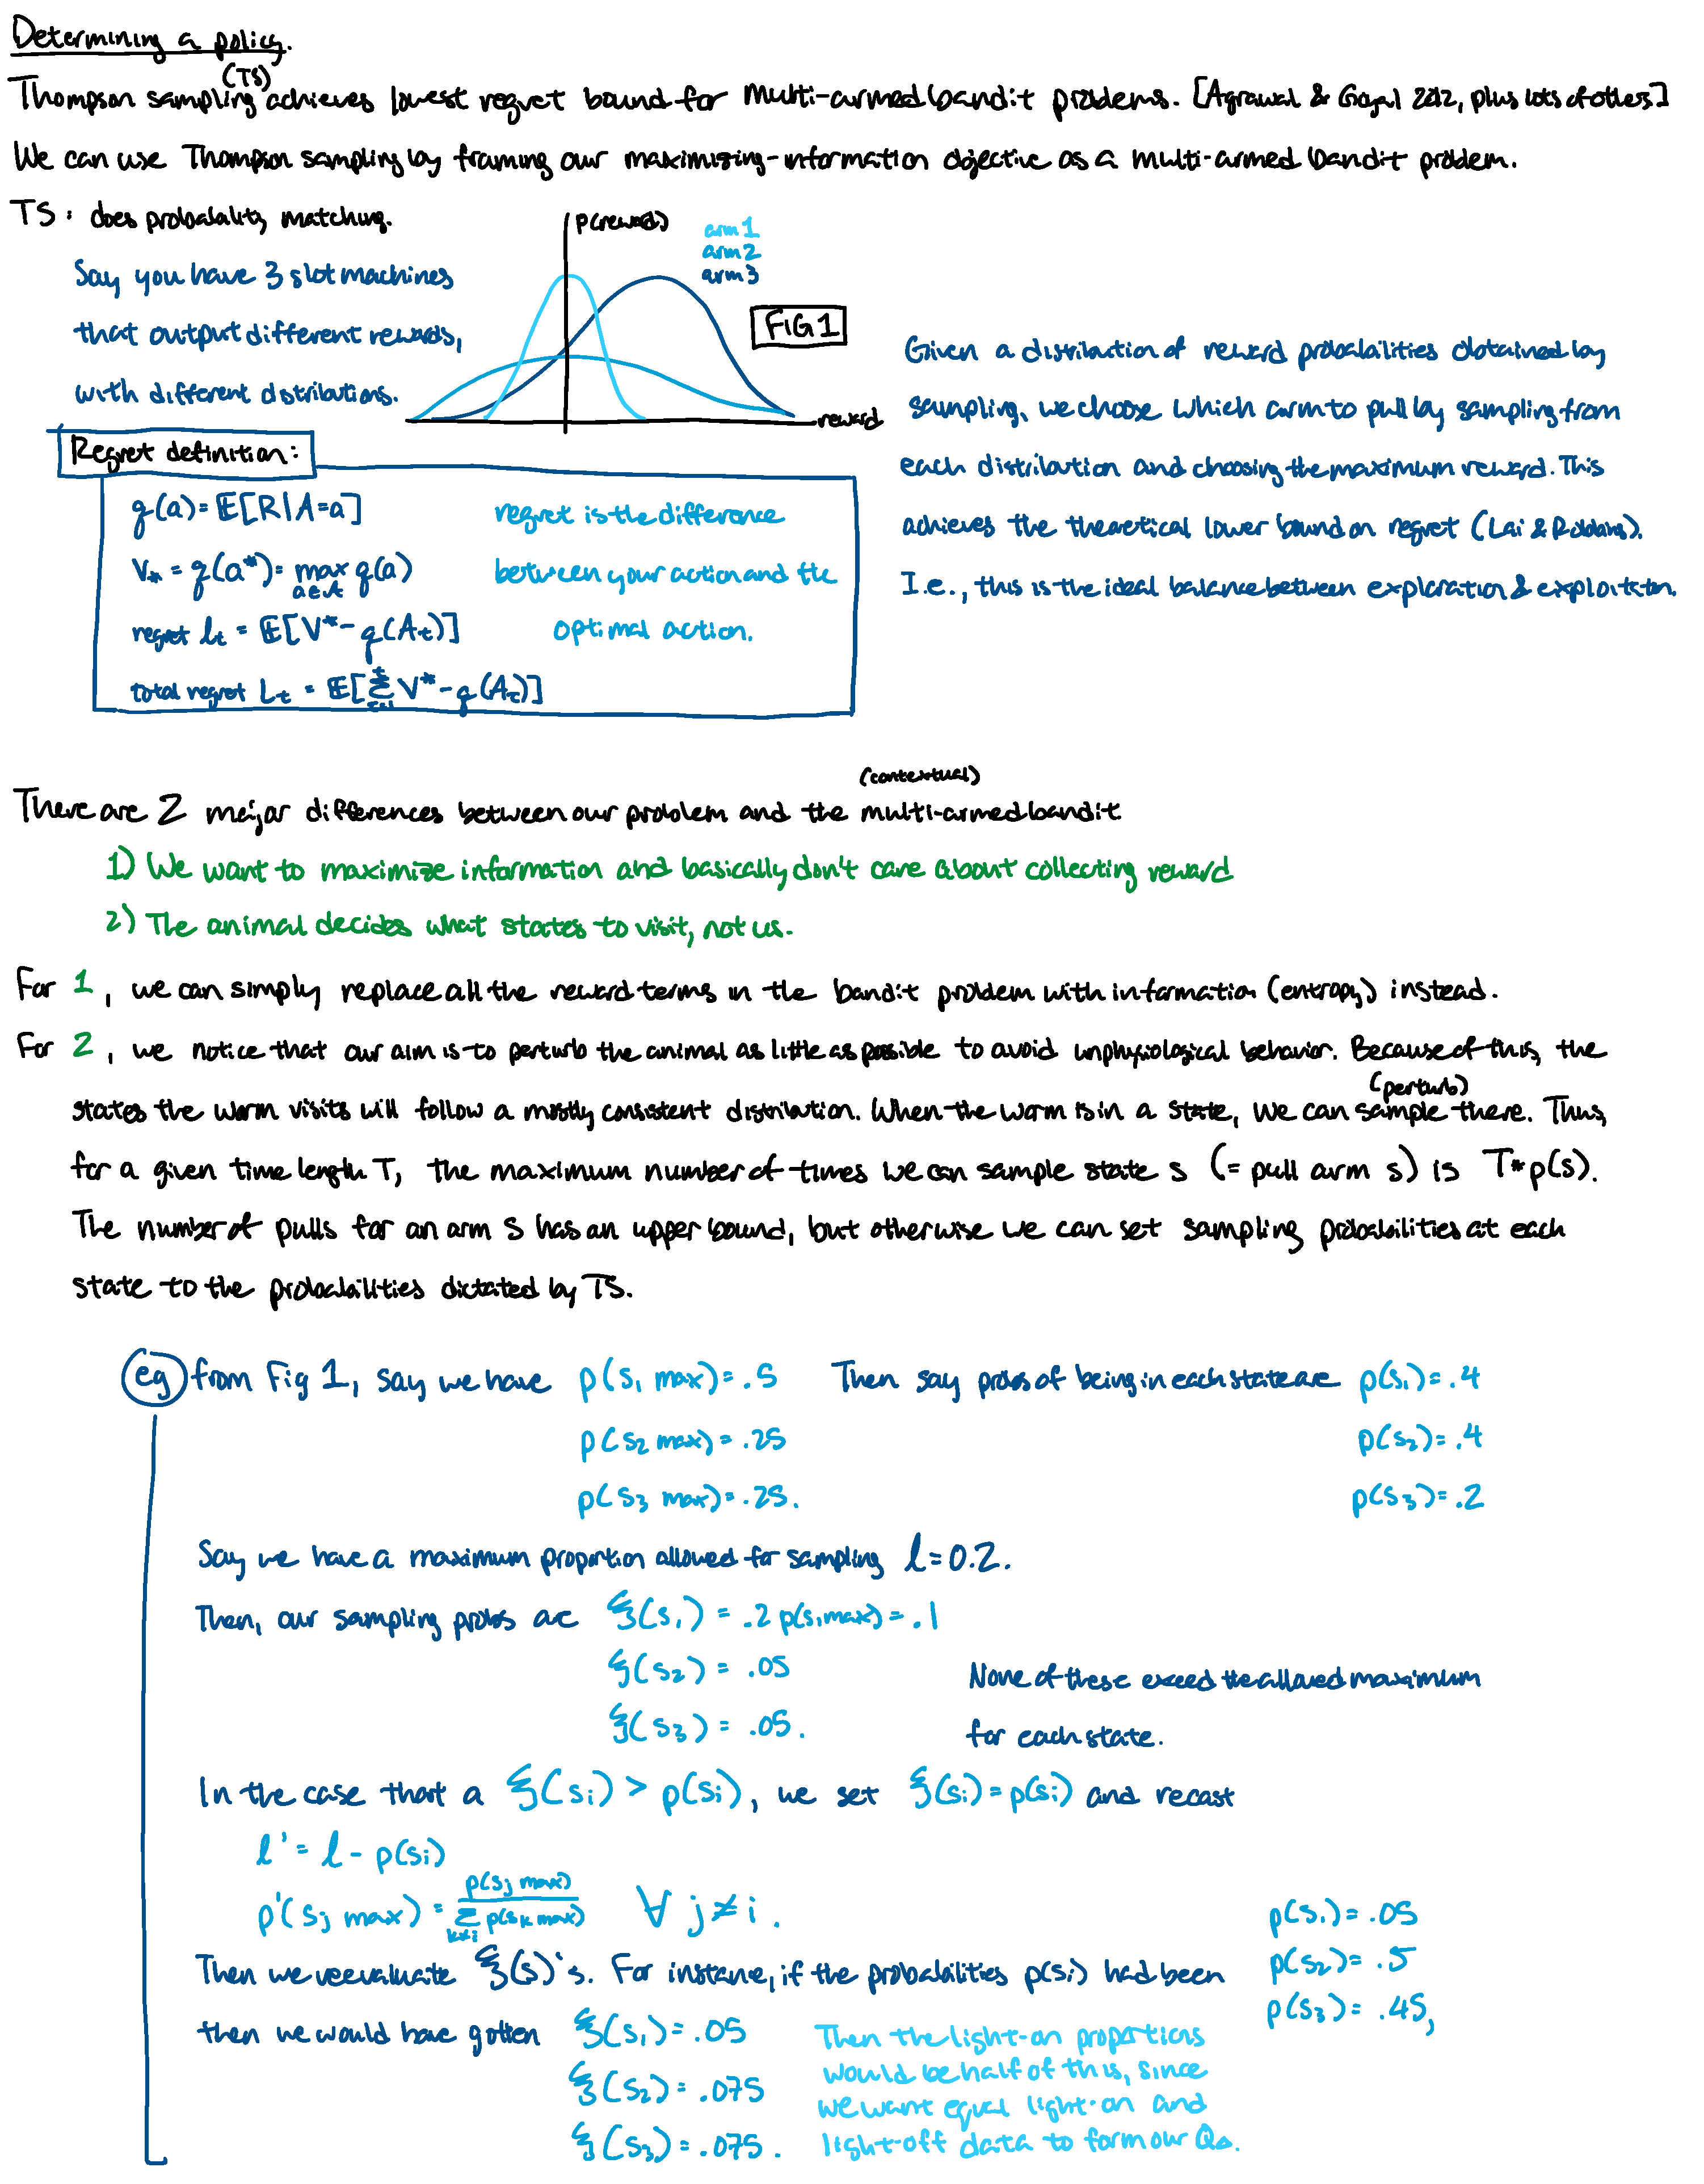 Determining a policy.
(TS)
Thompson sampling achieves lowest regret bound for multi-armed bandit problems. [Agrawal & Goyal 2012, plus lots of others]
We can use Thompson sampling by framing our maximizing-information objective as a multi-armed bandit problem.
TS: does probability matching.
Say you have 3 slot machines
that output different rewards,
with different distributions.
p(reward)
arm 1
arm 2
arm 3
FIG 1
reward
Given a distribution of reward probabilities obtained by
sampling, we choose which arm to pull by sampling from
each distribution and choosing the maximum reward. This
achieves the theoretical lower bound on regret (Lai & Robbins).
I.e., this is the ideal balance between exploration & exploitation.
Regret definition:
q(a) = 𝔼[R|A=a]
V* = q(a*) = max q(a)
a∈A
regret lt = 𝔼[V* - q(At)]
total regret Lt = 𝔼[Σ V* - q(Aτ)]
regret is the difference
between your action and the
optimal action.
(contextual)
There are 2 major differences between our problem and the multi-armed bandit
1) We want to maximize information and basically don't care about collecting reward
2) The animal decides what states to visit, not us.
For 1, we can simply replace all the reward terms in the bandit problem with information (entropy) instead.
For 2, we notice that our aim is to perturb the animal as little as possible to avoid unphysiological behavior. Because of this, the
(perturb)
states the worm visits will follow a mostly consistent distribution. When the worm is in a state, we can sample there. Thus,
for a given time length T, the maximum number of times we can sample state s (= pull arm s) is T*p(s).
The number of pulls for an arm s has an upper bound, but otherwise we can set sampling probabilities at each
state to the probabilities dictated by TS.
eg from Fig 1, say we have p(s₁ max) = .5 Then say probs of being in each state are p(s₁) = .4
p(s₂ max) = .25 p(s₂) = .4
p(s₃ max) = .25. p(s₃) = .2
Say we have a maximum proportion allowed for sampling l = 0.2.
Then, our sampling probs are ξ(s₁) = .2 p(s₁ max) = .1
ξ(s₂) = .05
ξ(s₃) = .05.
None of these exceed the allowed maximum
for each state.
In the case that a ξ(sᵢ) > p(sᵢ), we set ξ(sᵢ) = p(sᵢ) and recast
l' = l - p(sᵢ)
p'(sⱼ max) = p(sⱼ max) / Σ k≠i p(sₖ max) ∀ j ≠ i.
Then we reevaluate ξ(s)'s. For instance, if the probabilities p(sᵢ) had been
p(s₁) = .05
p(s₂) = .5
p(s₃) = .45,
then we would have gotten ξ(s₁) = .05
ξ(s₂) = .075
ξ(s₃) = .075.
Then the light-on proportions
would be half of this, since
we want equal light-on and
light-off data to form our QΔ.